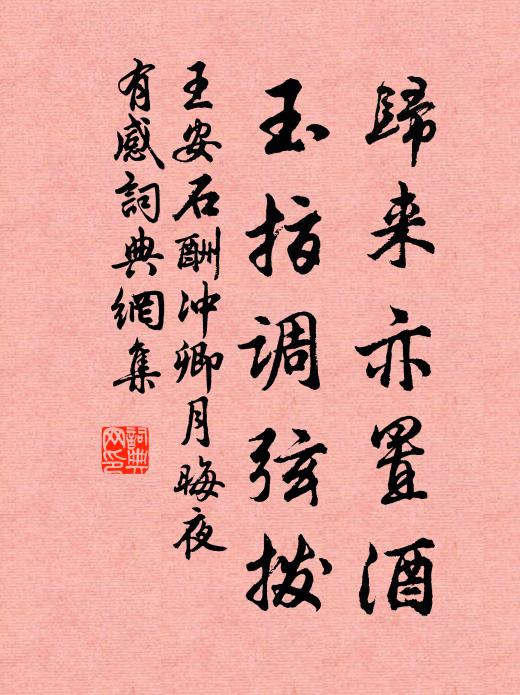 歸来亦置酒
玉指调弦拨
王安石酬沖卿月晦夜
有感詞典網集
詞典
网印